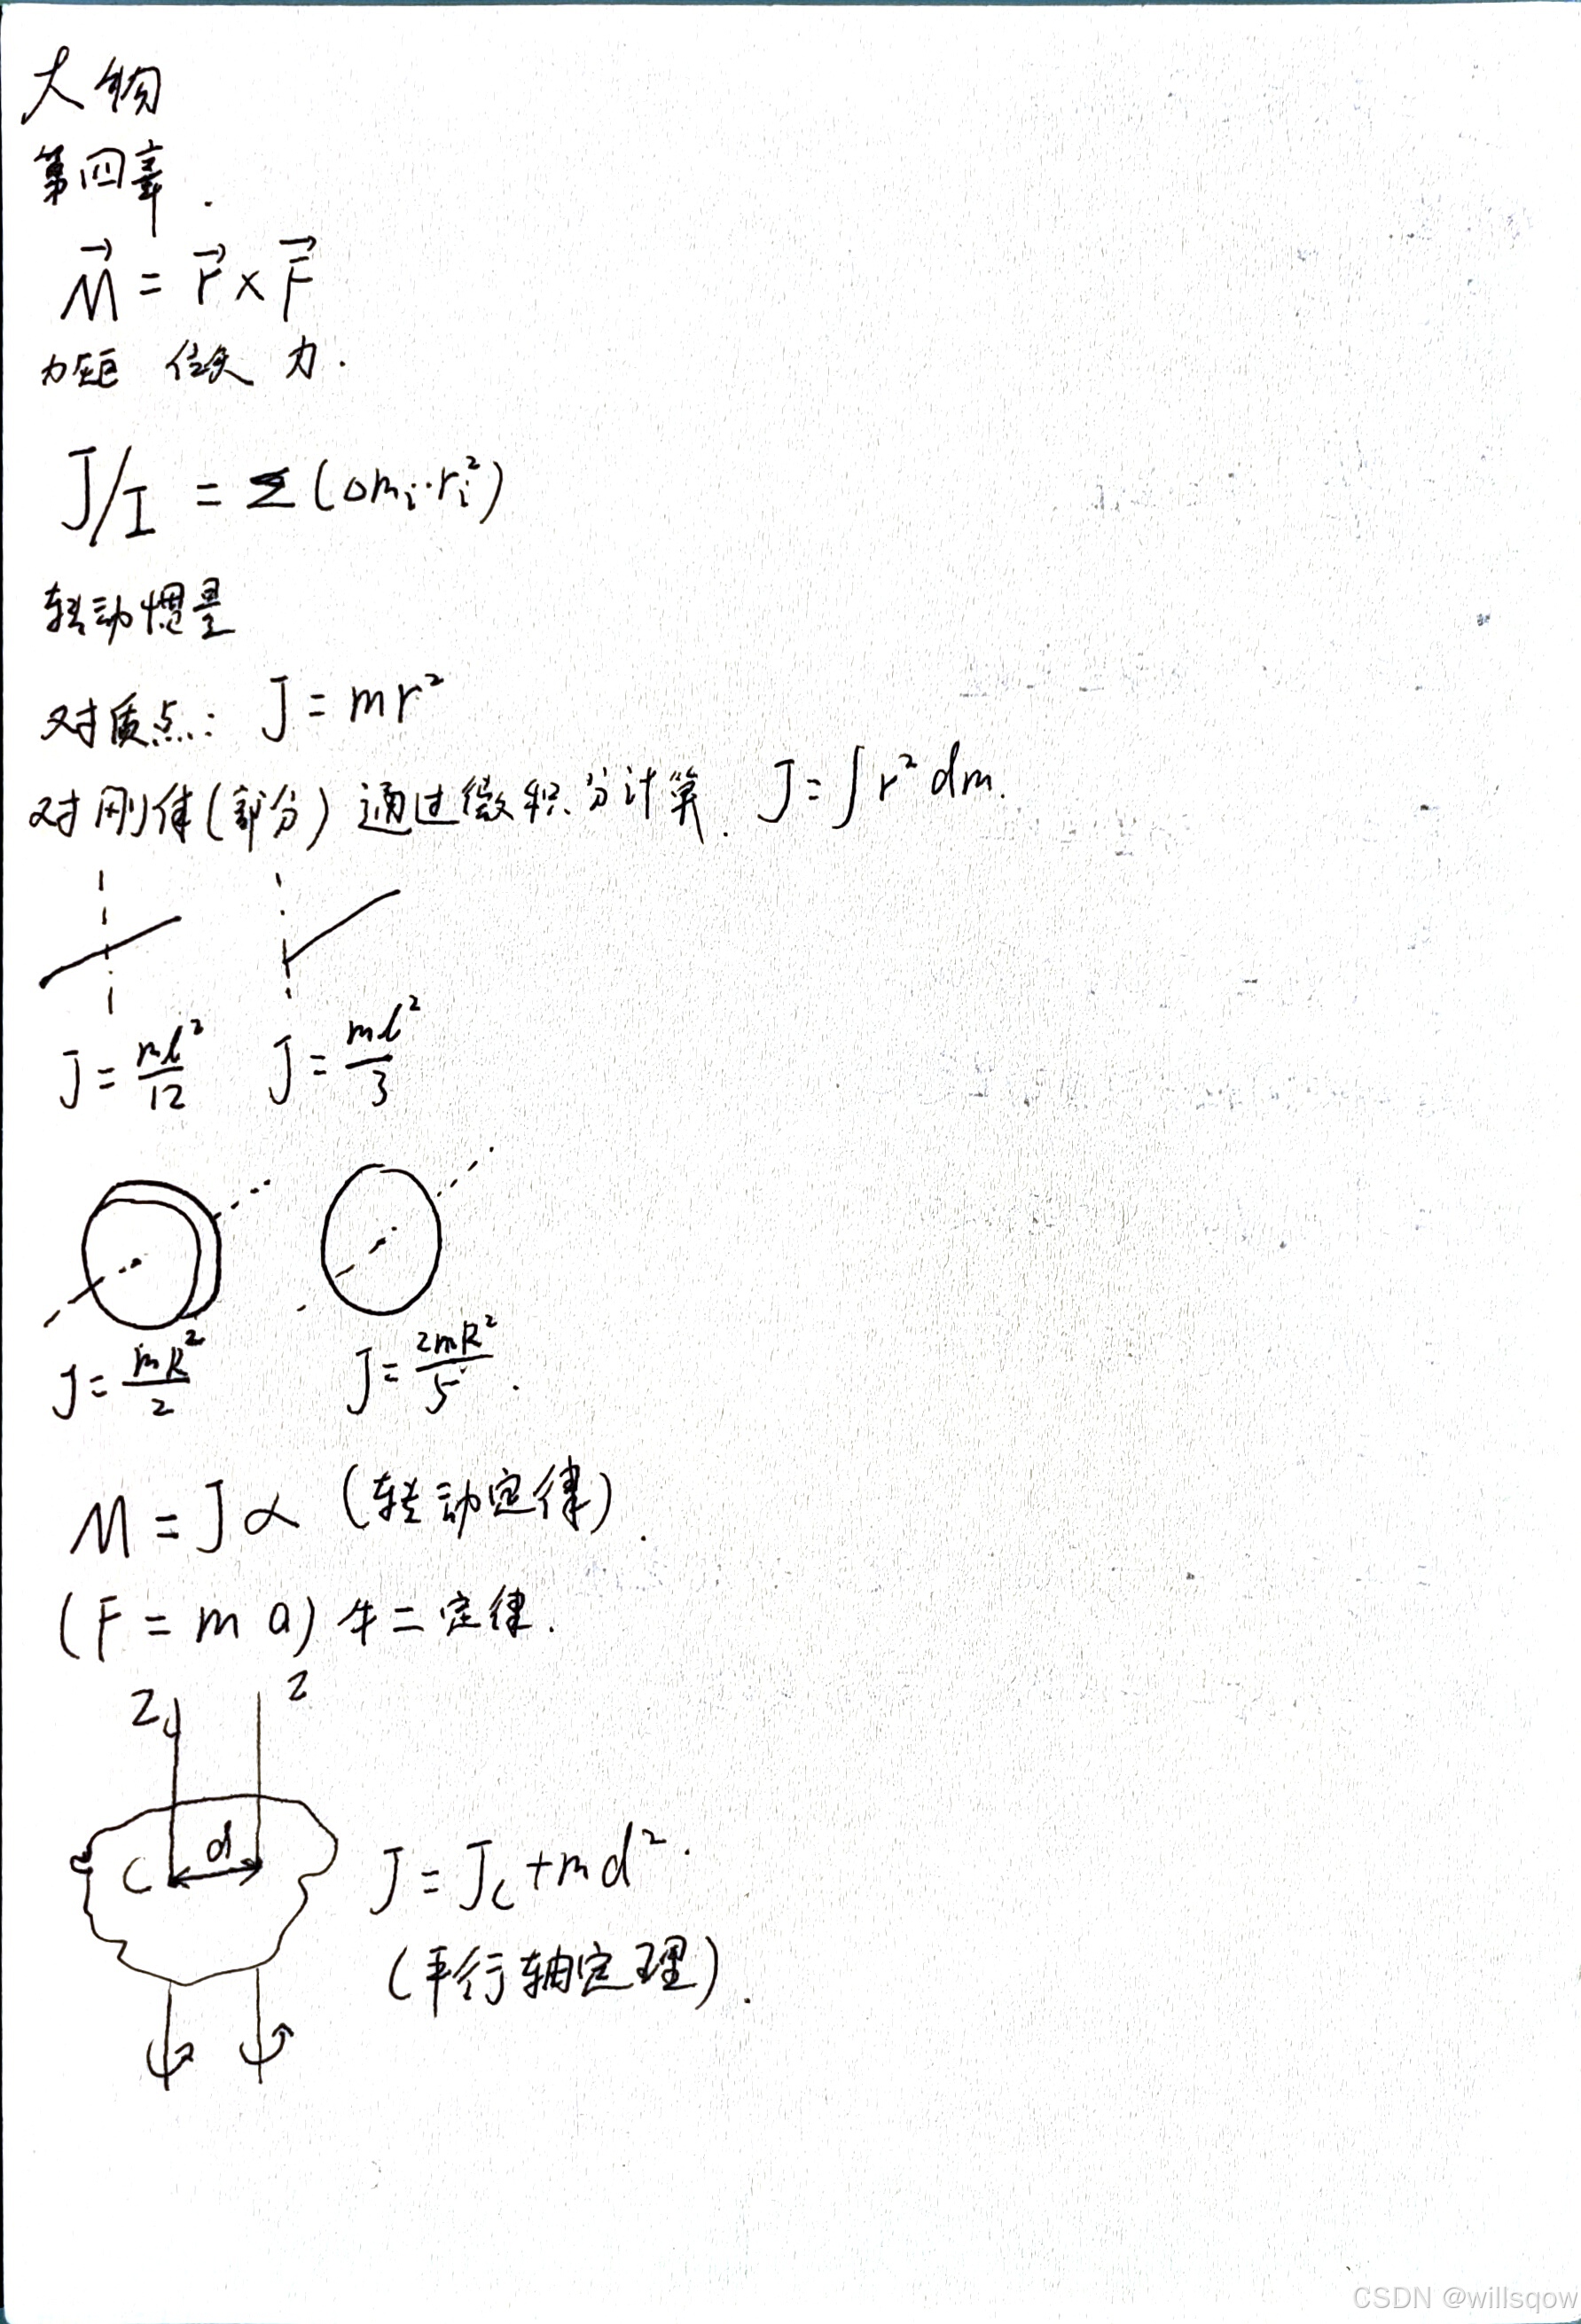 大物
第四章.
M⃗ = r⃗ × F⃗
力矩 位矢 力.
J/I = Σ(Δmᵢ·rᵢ²)
转动惯量
对质点: J = mr²
对刚体(部分)通过微积分计算. J = ∫r²dm.
J = ml²/12 J = ml²/3
J = mR²/2 J = 2mR²/5.
M = Jα (转动定律).
(F = ma) 牛二定律.
Z Z
C d
J = J_C + md².
(平行轴定理).
CSDN @willsqow